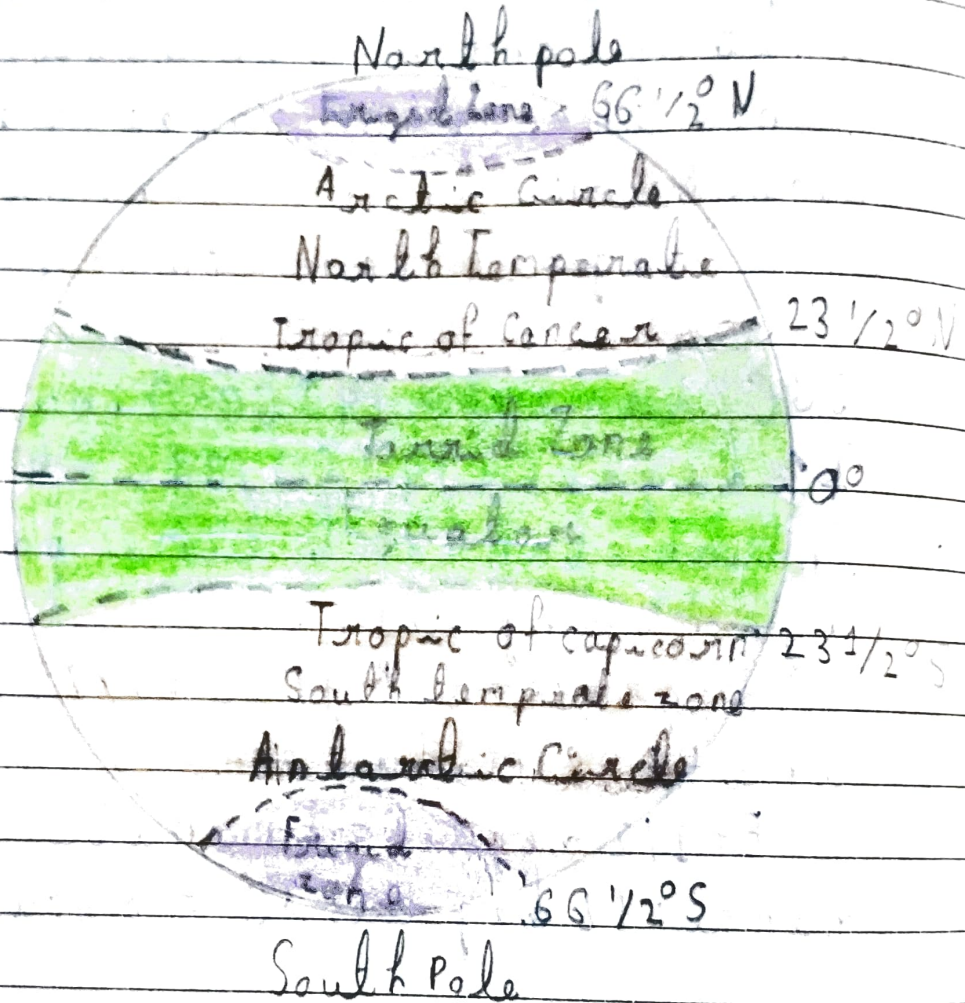 North pole
Frigid Zone 66 1/2° N
Arctic Circle
North Temperate
Tropic of Cancer 23 1/2° N
Torrid Zone
0°
Equator
Tropic of capicorn 23 1/2° S
South temprate zone
Antarctic Circle
Frigid
zone
66 1/2° S
South Pole